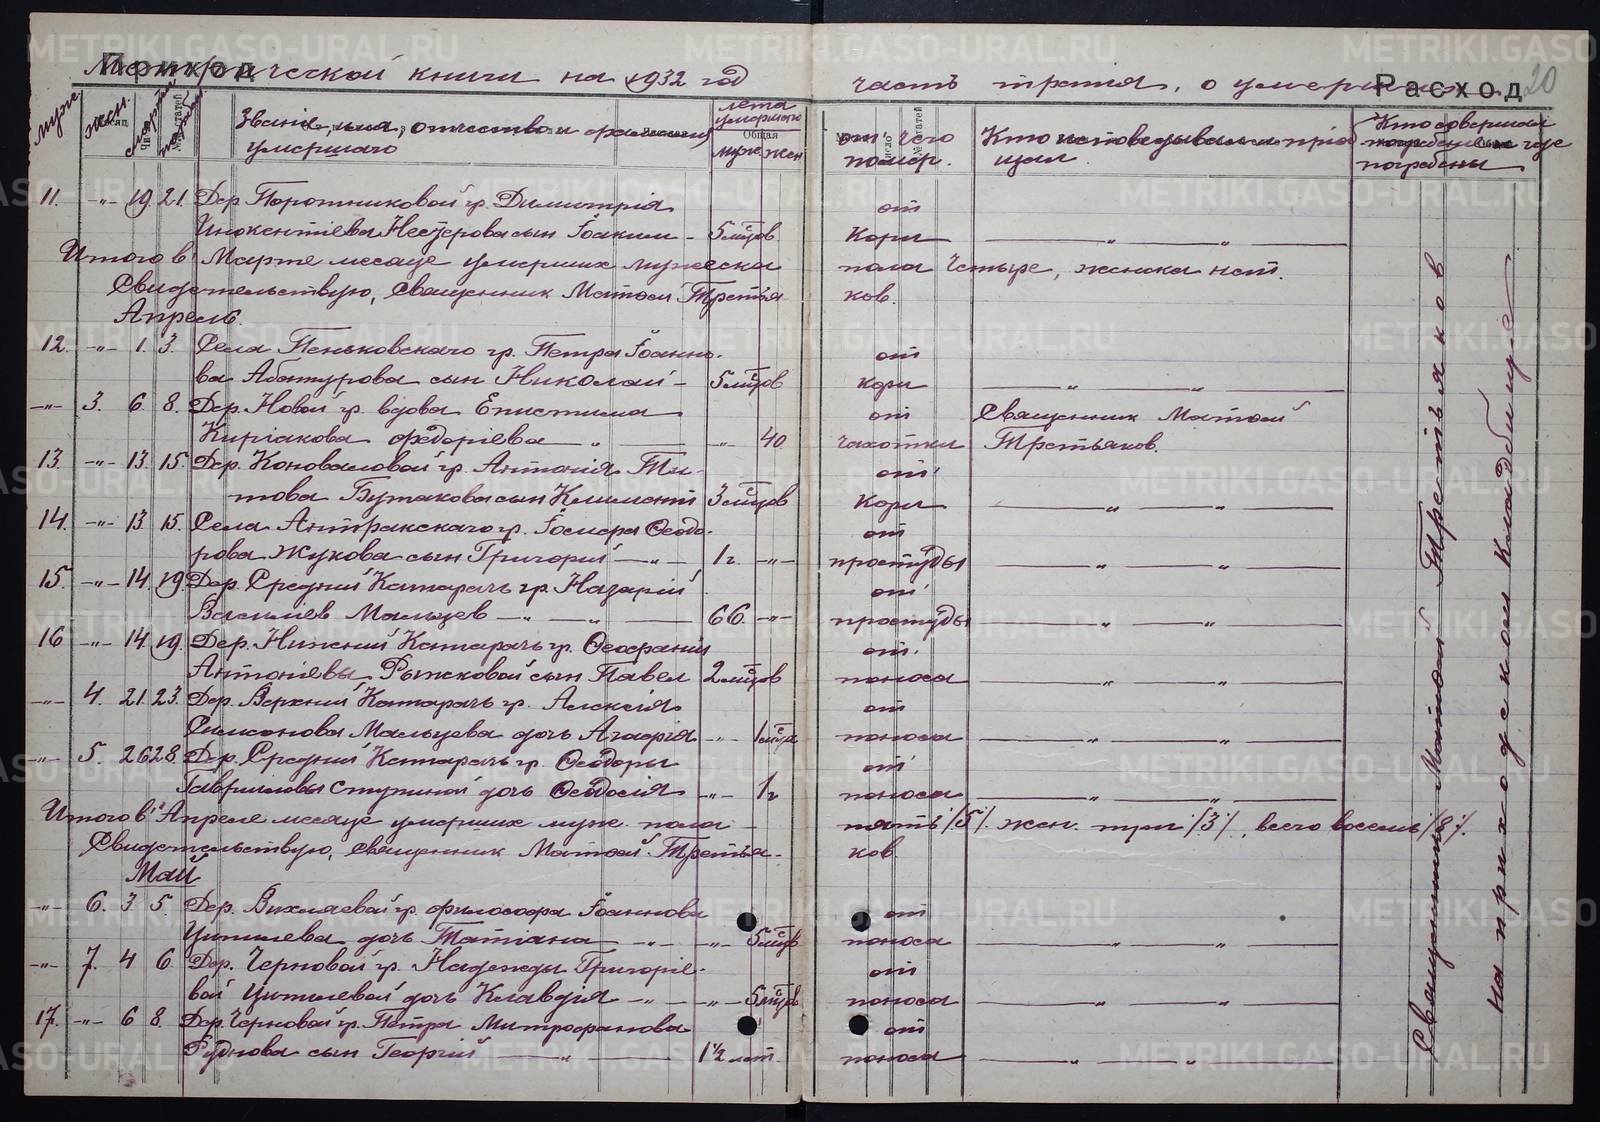 Приход
Метрической книги на 1932 год часть третия, о умерших
Расход
20
муж. жен. смерти погребен.
Звание, имя, отчество и фамилия умершаго
лета умершаго
Общая
муж. жен
от чего помер.
Кто исповедывал и приобщал
Кто совершал погребение и где погребены
11. -"- 19 21. Дер. Поротниковой гр. Димитрія от
Инокентіева Нестерова сын Іоаким - 5 м-цов Кори " "
Итого в Марте месаце умерших мужеска пола Четыре, женска нет.
Свидетельствую, Священник Матфей Третьяков.
Апрель.
12. -"- 1. 3. Села Пеньковскаго гр. Петра Іоанно- от
ва Абатурова сын Николай - 5 м-цов кори " "
-"- 3. 6. 8. Дер. Новой гр. вдова Епистимия от Священник Матфей
Киріакова Федоріева " -"- 40 чахотки Третьяков.
13. -"- 13. 15. Дер. Коноваловой гр. Антонія Ти- от
това Бутакова сын Климент 3 м-цов Кори " "
14. -"- 13. 15. Села Антракскаго гр. Феодо- от
рова Жукова сын Григорий -"- 1 г. -"- простуды " "
15. -"- 14. 19. Дер. Средний Катарачь гр. Назарий от
Василіев Мальцев -"- -"- 66. -"- простуды " "
16 -"- 14 19. Дер. Нижний Катарачь гр. Феофании от
Антоніевы Рыжковой сын Павел 2 м-цов поноса " "
-"- 4. 21. 23. Дер. Верхний Катарачь гр. Алексія от
Симонова Мальцева дочь Агафія -"- 1 м-ца поноса " "
-"- 5. 26 28. Дер. Средний Катарачь гр. Феодоры от
Гавриловы Ступиной дочь Феодосія -"- 1 г поноса " "
Итого в Апреле месаце умерших муж. пола пять /5/. жен. три /3/., всего восемь /8/.
Свидетельствую, священник Матфей Третьяков.
Май
-"- 6. 3. 5. Дер. Вихляевой гр. Философа Іоаннова от
Цитилева дочь Татіана -"- -"- 5 м-цов поноса " "
-"- 7. 4 6. Дер. Черновой гр. Надежды Григоріе- от
вой Цитилевой дочь Клавдія -"- -"- 5 м-цов поноса " "
17. -"- 6 8. Дер. Черновой гр. Петра Митрофанова от
Руднова сын Георгий " 1½ лет поноса " "
Священник Матфей Третьяков
на приходском кладбище
METRIKI.GASO-URAL.RU